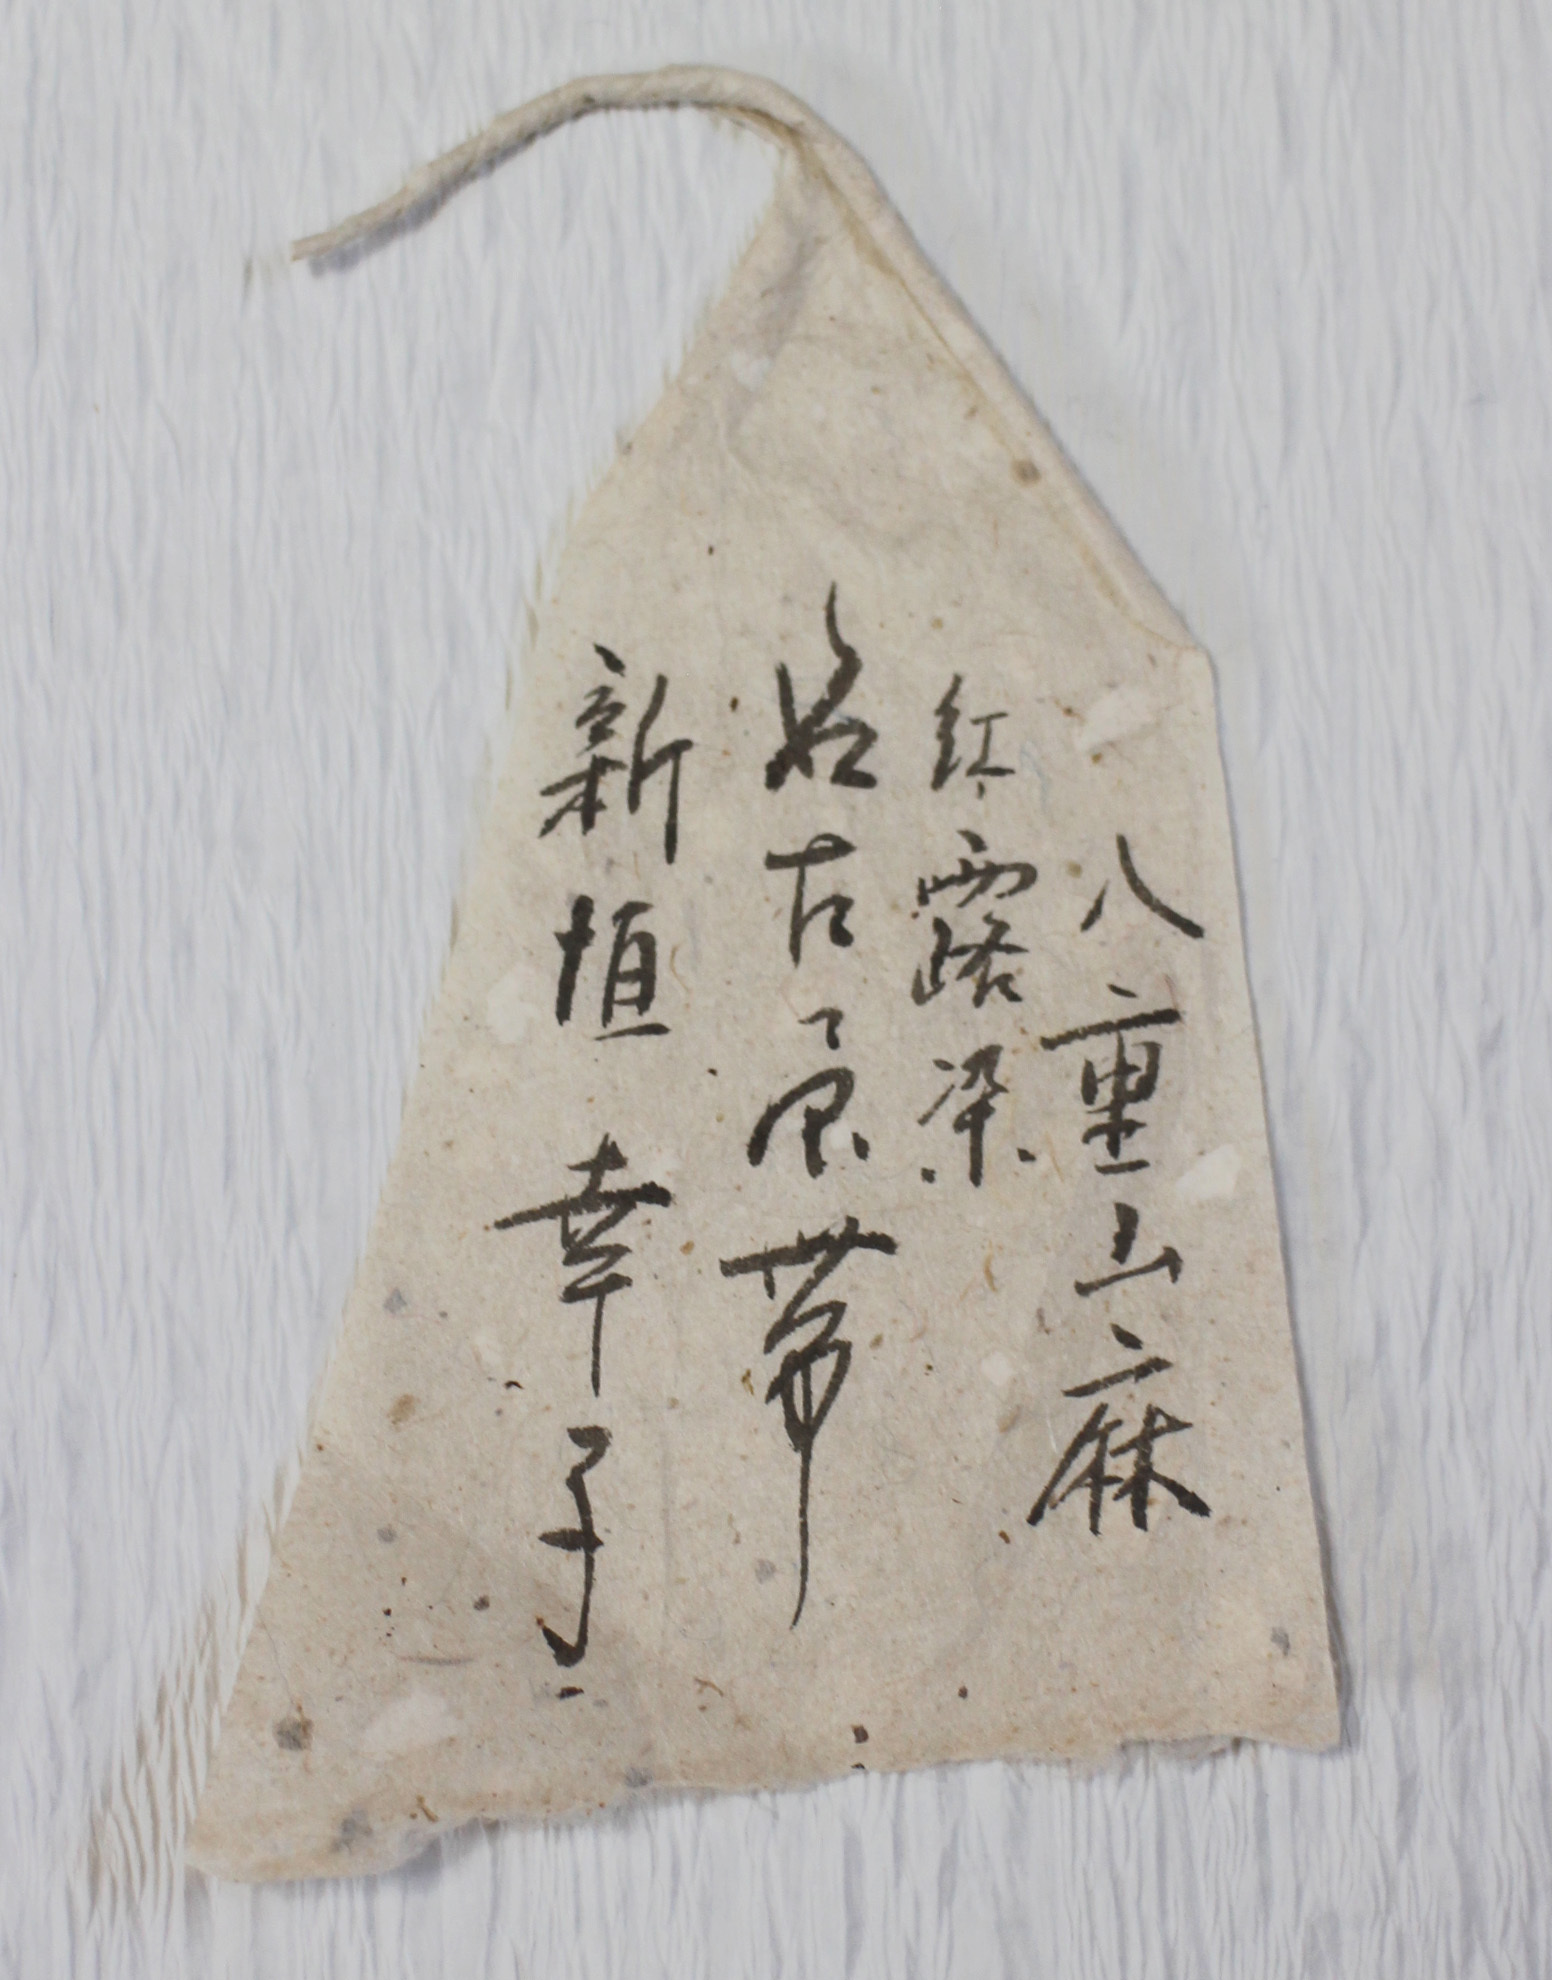 八重山麻
紅露染
名古屋帯
新垣幸子